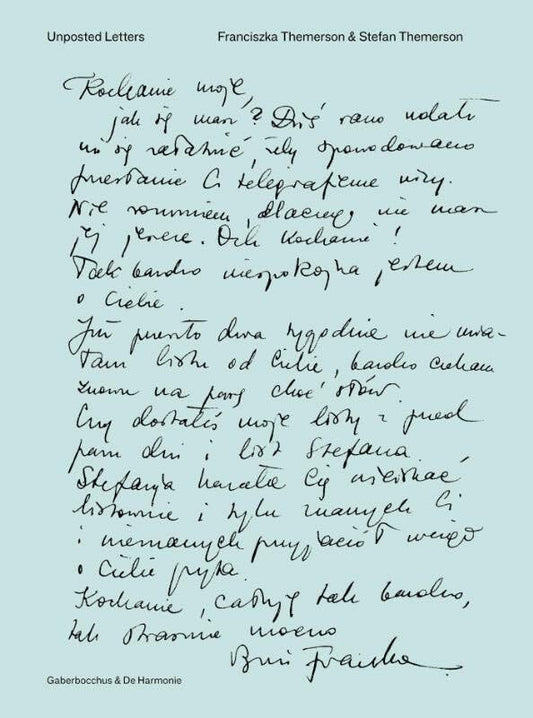 Unposted Letters
Franciszka Themerson & Stefan Themerson
Kochanie moje,
jak się masz? Dziś rano udało
mi się załatwić, żeby spowodowano
przesłanie Ci telegraficzne wizy.
Nie rozumiem, dlaczego nie masz
jej jeszcze. Och kochanie!
Tak bardzo niespokojna jestem
o Ciebie.
Już przeszło dwa tygodnie nie mia-
łam listu od Ciebie, bardzo czekam
znowu na parę choć słów.
Czy dostałeś moje listy z przed
paru dni i list Stefana.
Stefania kazała Cię uściskać
listownie i tylu znanych Ci
i nieznanych przyjaciół wciąż
o Ciebie pyta.
Kochanie, całuję tak bardzo,
tak strasznie mocno
Franciszka.
Gaberbocchus & De Harmonie